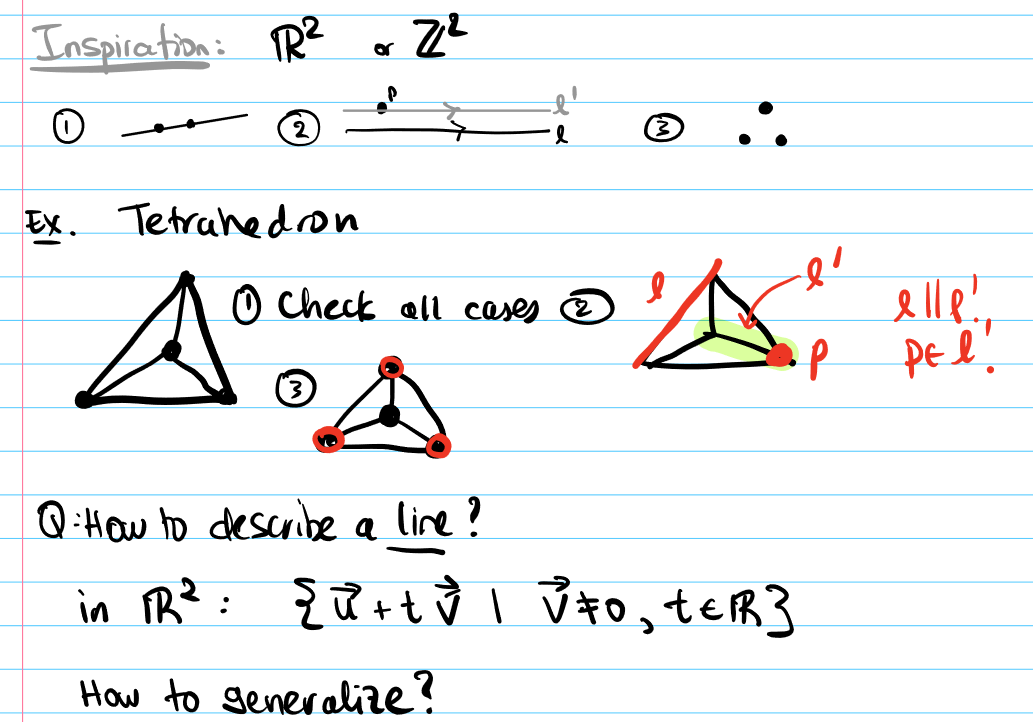 Inspiration: ℝ² or ℤ²
① ② p l' l ③
Ex. Tetrahedron
① Check all cases ② l l' p l ∥ l'.
③ p ∈ l'.
Q: How to describe a line?
in ℝ²: {u⃗ + t v⃗ | v⃗ ≠ 0, t ∈ ℝ}
How to generalize?